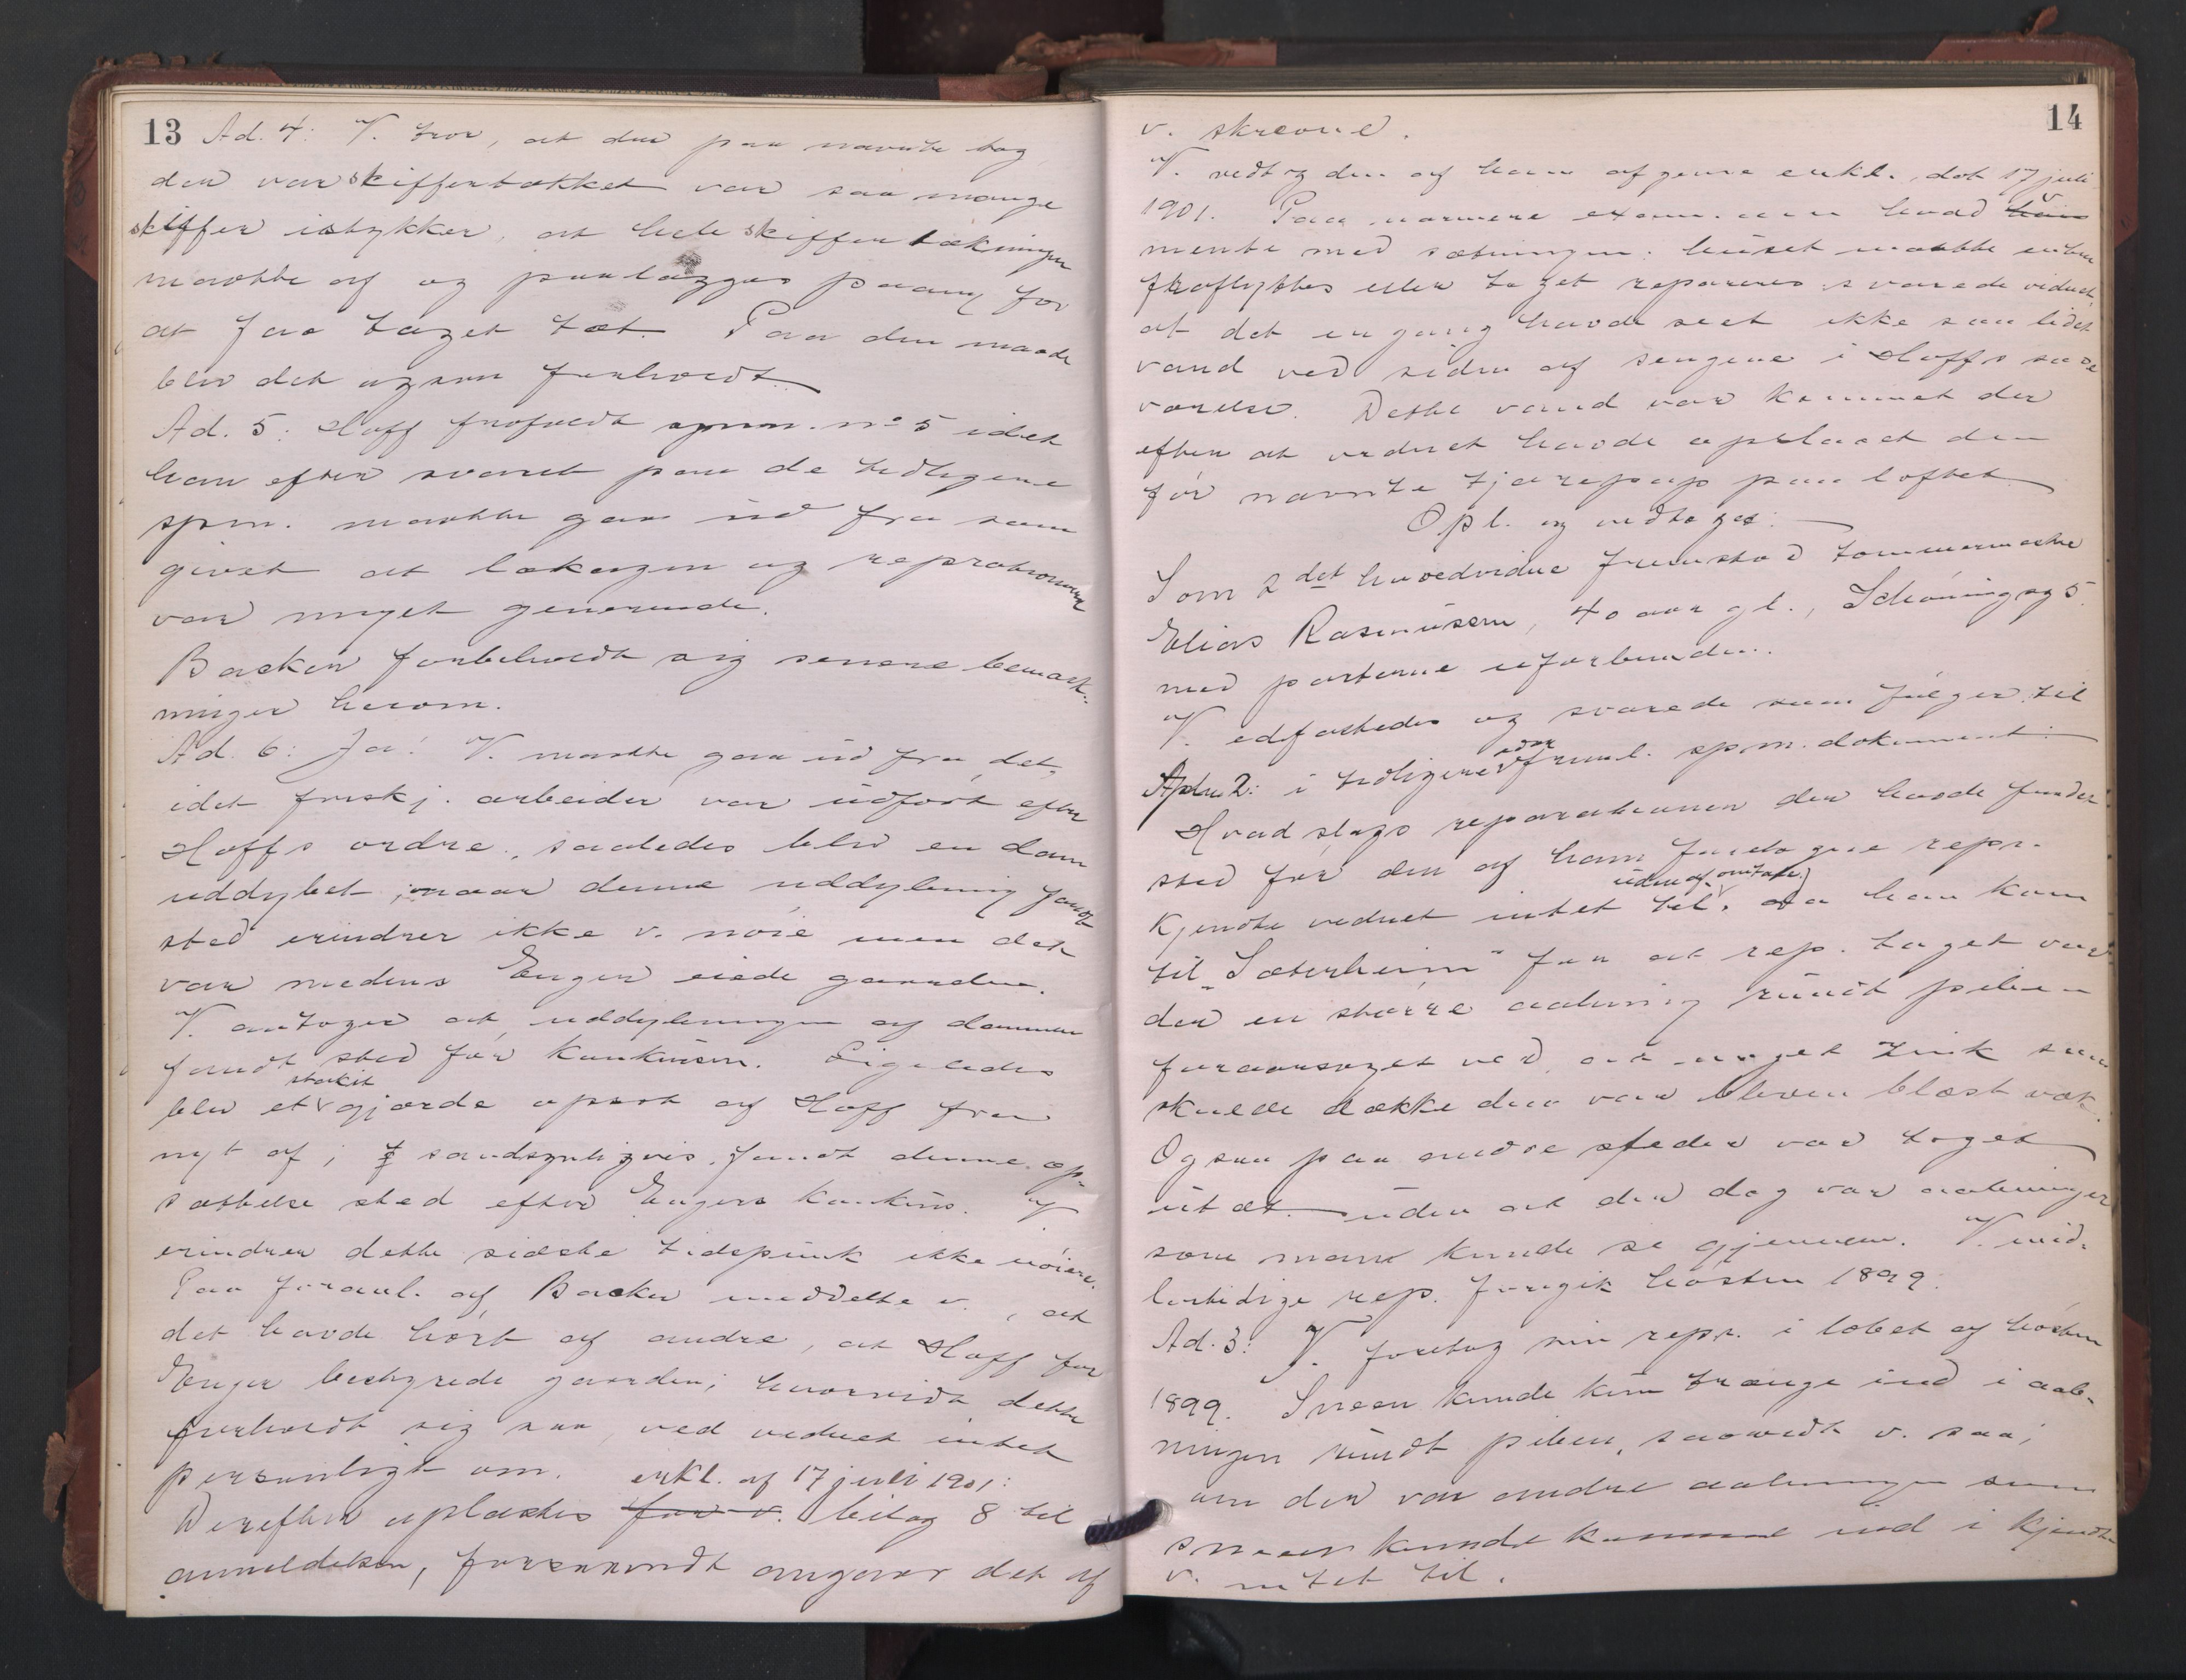 13
Ad. 4: V. tror, at der paa nævnte tag
der var skiffertækket var saa mange
skiffer istykker, at hele skiffertækningen
maatte af og paalægges paany for
at faa taget tæt. Paa den maade
blev det ogsaa forholdt.
Ad. 5: Hoff frafaldt spm. no 5 idet
han efter svaret paa de tidligere
spm. maatte gaa ud fra som
givet at lækagen og reprationerne
var meget generende.
Backer forbeholdt sig senere bemærk-
ninger herom.
Ad. 6: Ja! V. maatte gaa ud fra det,
idet forskj. arbeider var udført efter
Hoffs ordre, saaledes blev en dam
uddybet; naar denne uddybning fandt
sted erindrer ikke v. nöie men det
var medens Enger eiede gaarden.
V. antager at uddybningen af dammen
fandt sted før konkursen. Ligeledes
blev et stakit gjærde opsat af Hoff fra
nyt af; sandsynligvis fandt denne op-
sættelse sted efter Engers konkurs. V.
erindrer dette sidste tidspunk ikke nöiere.
Paa foranl. af Backer meddelte v., at
det havde hørt af andre, at Hoff for
Enger bestyrede gaarden; hvorvidt dette
forholdt sig saa, ved vidnet intet
personligt om.
erkl. af 17 juli 1901:
Derefter oplæstes for v. bilag 8 til
anmeldelsen, forsaavidt angaar det af
14
v. skrevne.
V. vedtog den af ham afgivne erkl., dat 17 juli
1901. Paa nærmere exam. om hvad han v
mente med sætningen: huset maatte enten
fraflyttes eller taget repareres svarede vidnet,
at det engang havde seet ikke saa lidet
vand ved siden af sengene i Hoffs sove
værelse. Dette vand var kommet der
efter at vidnet havde oplaaet den
før nævnte tjærepap paa loftet.
Opl. og vedtaget.
Som 2 det hovedvidne fremstod tømmermester
Elias Rasmussen, 40 aar gl., Schøningsg 5.
med parterne uforbunden.
V. edfæstedes og svarede som følger til
i tidligere foreml. spm. dokument:
Hvad slags reparationer der havde fundet
sted før den af ham foretagne repr.
kjendte vidnet intet til, uden af omtale. Da han kom
til "Sæterheim" for at rep. taget var
der en større aabning rundt piben
foraarsaget ved, at noget zink som
skulde dække den var bleven blæst væk.
Ogsaa paa andre steder var taget
utæt uden at der dog var aabninger
som man kunde se gjennem. V. mid-
lertidige rep. foregik høsten 1899.
Ad. 3: V. foretog sin repr. i løbet af høsten
1899. Sneen kunde kun trænge ind i aab-
ningen rundt piben, saavidt v. saa;
om der var andre aabninger som
sneen kunde komme ind i kjendte
v. intet til.